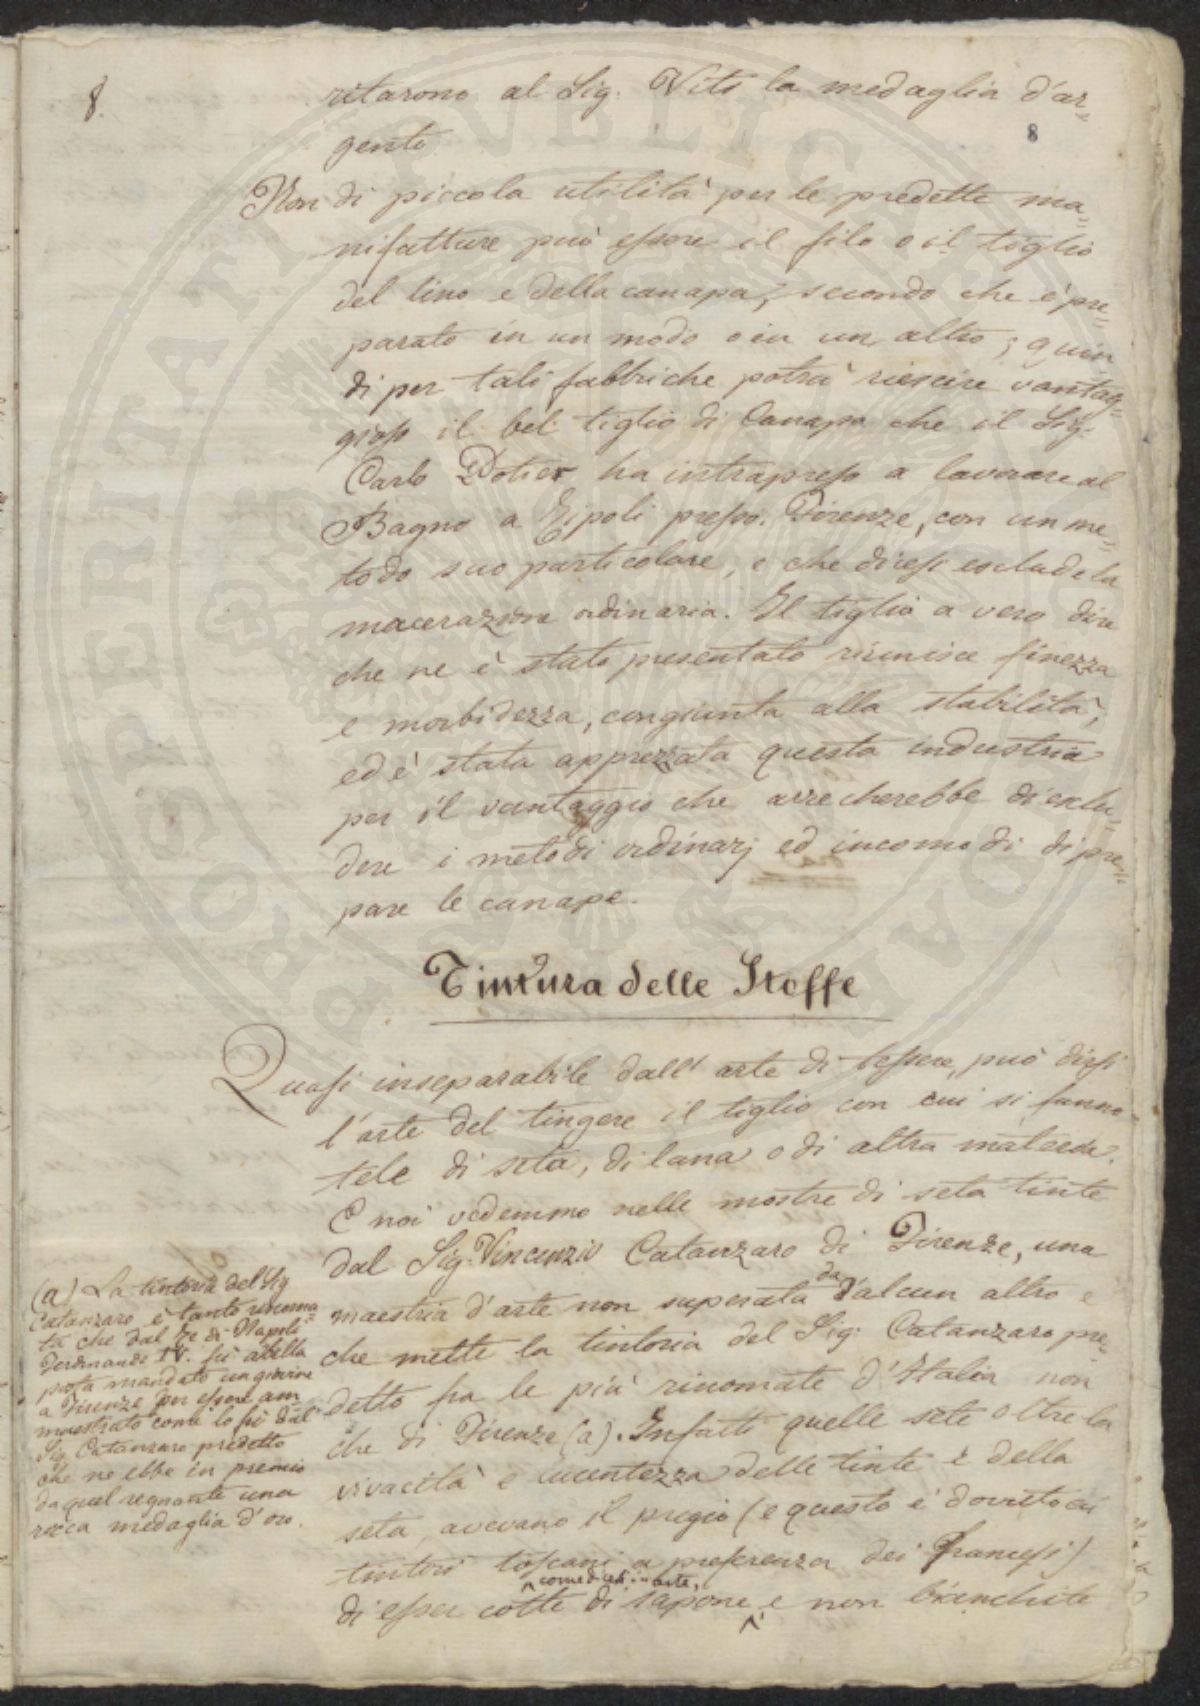 8.
ritarono al Sig. Vito la medaglia d'ar=
8
gento
Non di piccola utilità per le predette ma=
nifatture può essere il filo o il tiglio
del lino e della canapa, secondo che è pre=
parato in un modo o in un altro; quin=
di per tali fabbriche potrà riescire vantag=
gioso il bel tiglio di Canapa che il Sig.
Carlo Potier ha intrapreso a lavorare al
Bagno a Ripoli presso Firenze, con un me=
todo suo particolare, e che dicesi esclude la
macerazione ordinaria. Il tiglio a vero dire
che ne è stato presentato riunisce finezza
e morbidezza, congiunta alla stabilità,
ed è stata apprezzata questa industria
per il vantaggio che arrecherebbe di esclu=
dere i metodi ordinarj ed incomodi di pre=
pare le canape.
Tintura delle Stoffe
Quasi inseparabile dall'arte di tessere, può dirsi
l'arte del tingere il tiglio con cui si fanno
tele di seta, di lana o di altra materia.
E noi vedemmo nelle mostre di seta tinte
dal Sig. Vincenzio Catanzaro di Firenze, una
maestria d'arte non superata da d'alcun altro e
che mette la tintoria del Sig. Catanzaro pre=
detto fra le più rinomate d'Italia non
che di Firenze (a). Infatti quelle sete oltre la
vivacità e lucentezza delle tinte e della
seta, avevano il pregio (e questo è dovuto ai
tintori toscani a preferenza dei Francesi)
di esser cotte di sapone come dicesi in arte, e non bianchite
(a) La tintoria del Sig.
Catanzaro è tanto rinoma=
ta che dal Re di Napoli
Ferdinando IV. fù abella
posta mandato un giovine
a Firenze per essere am=
maestrato come lo fù dal
Sig. Catanzaro predetto
che ne ebbe in premio
da quel regnante una
ricca medaglia d'oro.